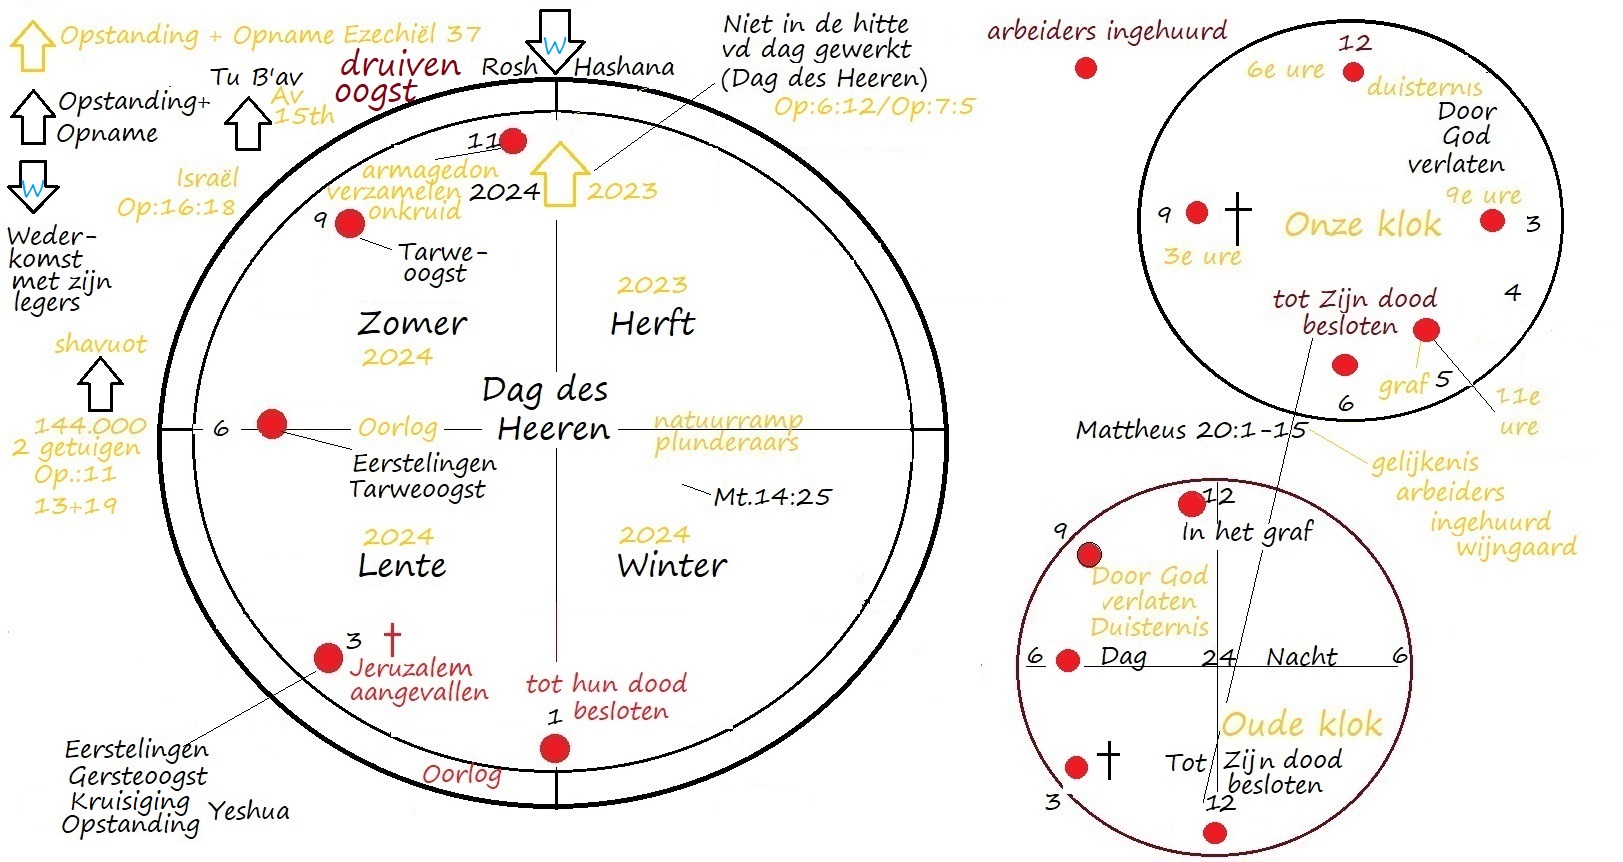 Opstanding + Opname Ezechiël 37
Opstanding+
Opname
Tu B'av
Av
15th
druiven
oogst
Rosh Hashana
W
Niet in de hitte
vd dag gewerkt
(Dag des Heeren)
Op:6:12/Op:7:5
Israël
Op:16:18
W
Weder-
komst
met zijn
legers
shavuot
144.000
2 getuigen
Op.:11
13+19
11
armagedon
verzamelen
onkruid
2024
2023
9
Tarwe-
oogst
Zomer
2024
2023
Herft
Dag des
Heeren
6
Oorlog
natuurramp
plunderaars
Eerstelingen
Tarweoogst
Mt.14:25
2024
Lente
2024
Winter
3
Jeruzalem
aangevallen
tot hun dood
besloten
1
Oorlog
Eerstelingen
Gersteoogst
Kruisiging
Opstanding
Yeshua
arbeiders ingehuurd
12
6e ure
duisternis
Door
God
verlaten
9e ure
9
3e ure
Onze klok
3
4
tot Zijn dood
besloten
graf
5
6
11e
ure
Mattheus 20:1-15
gelijkenis
arbeiders
ingehuurd
wijngaard
12
In het graf
9
Door God
verlaten
Duisternis
6
Dag
24
Nacht
6
Oude klok
Tot Zijn dood
besloten
3
12